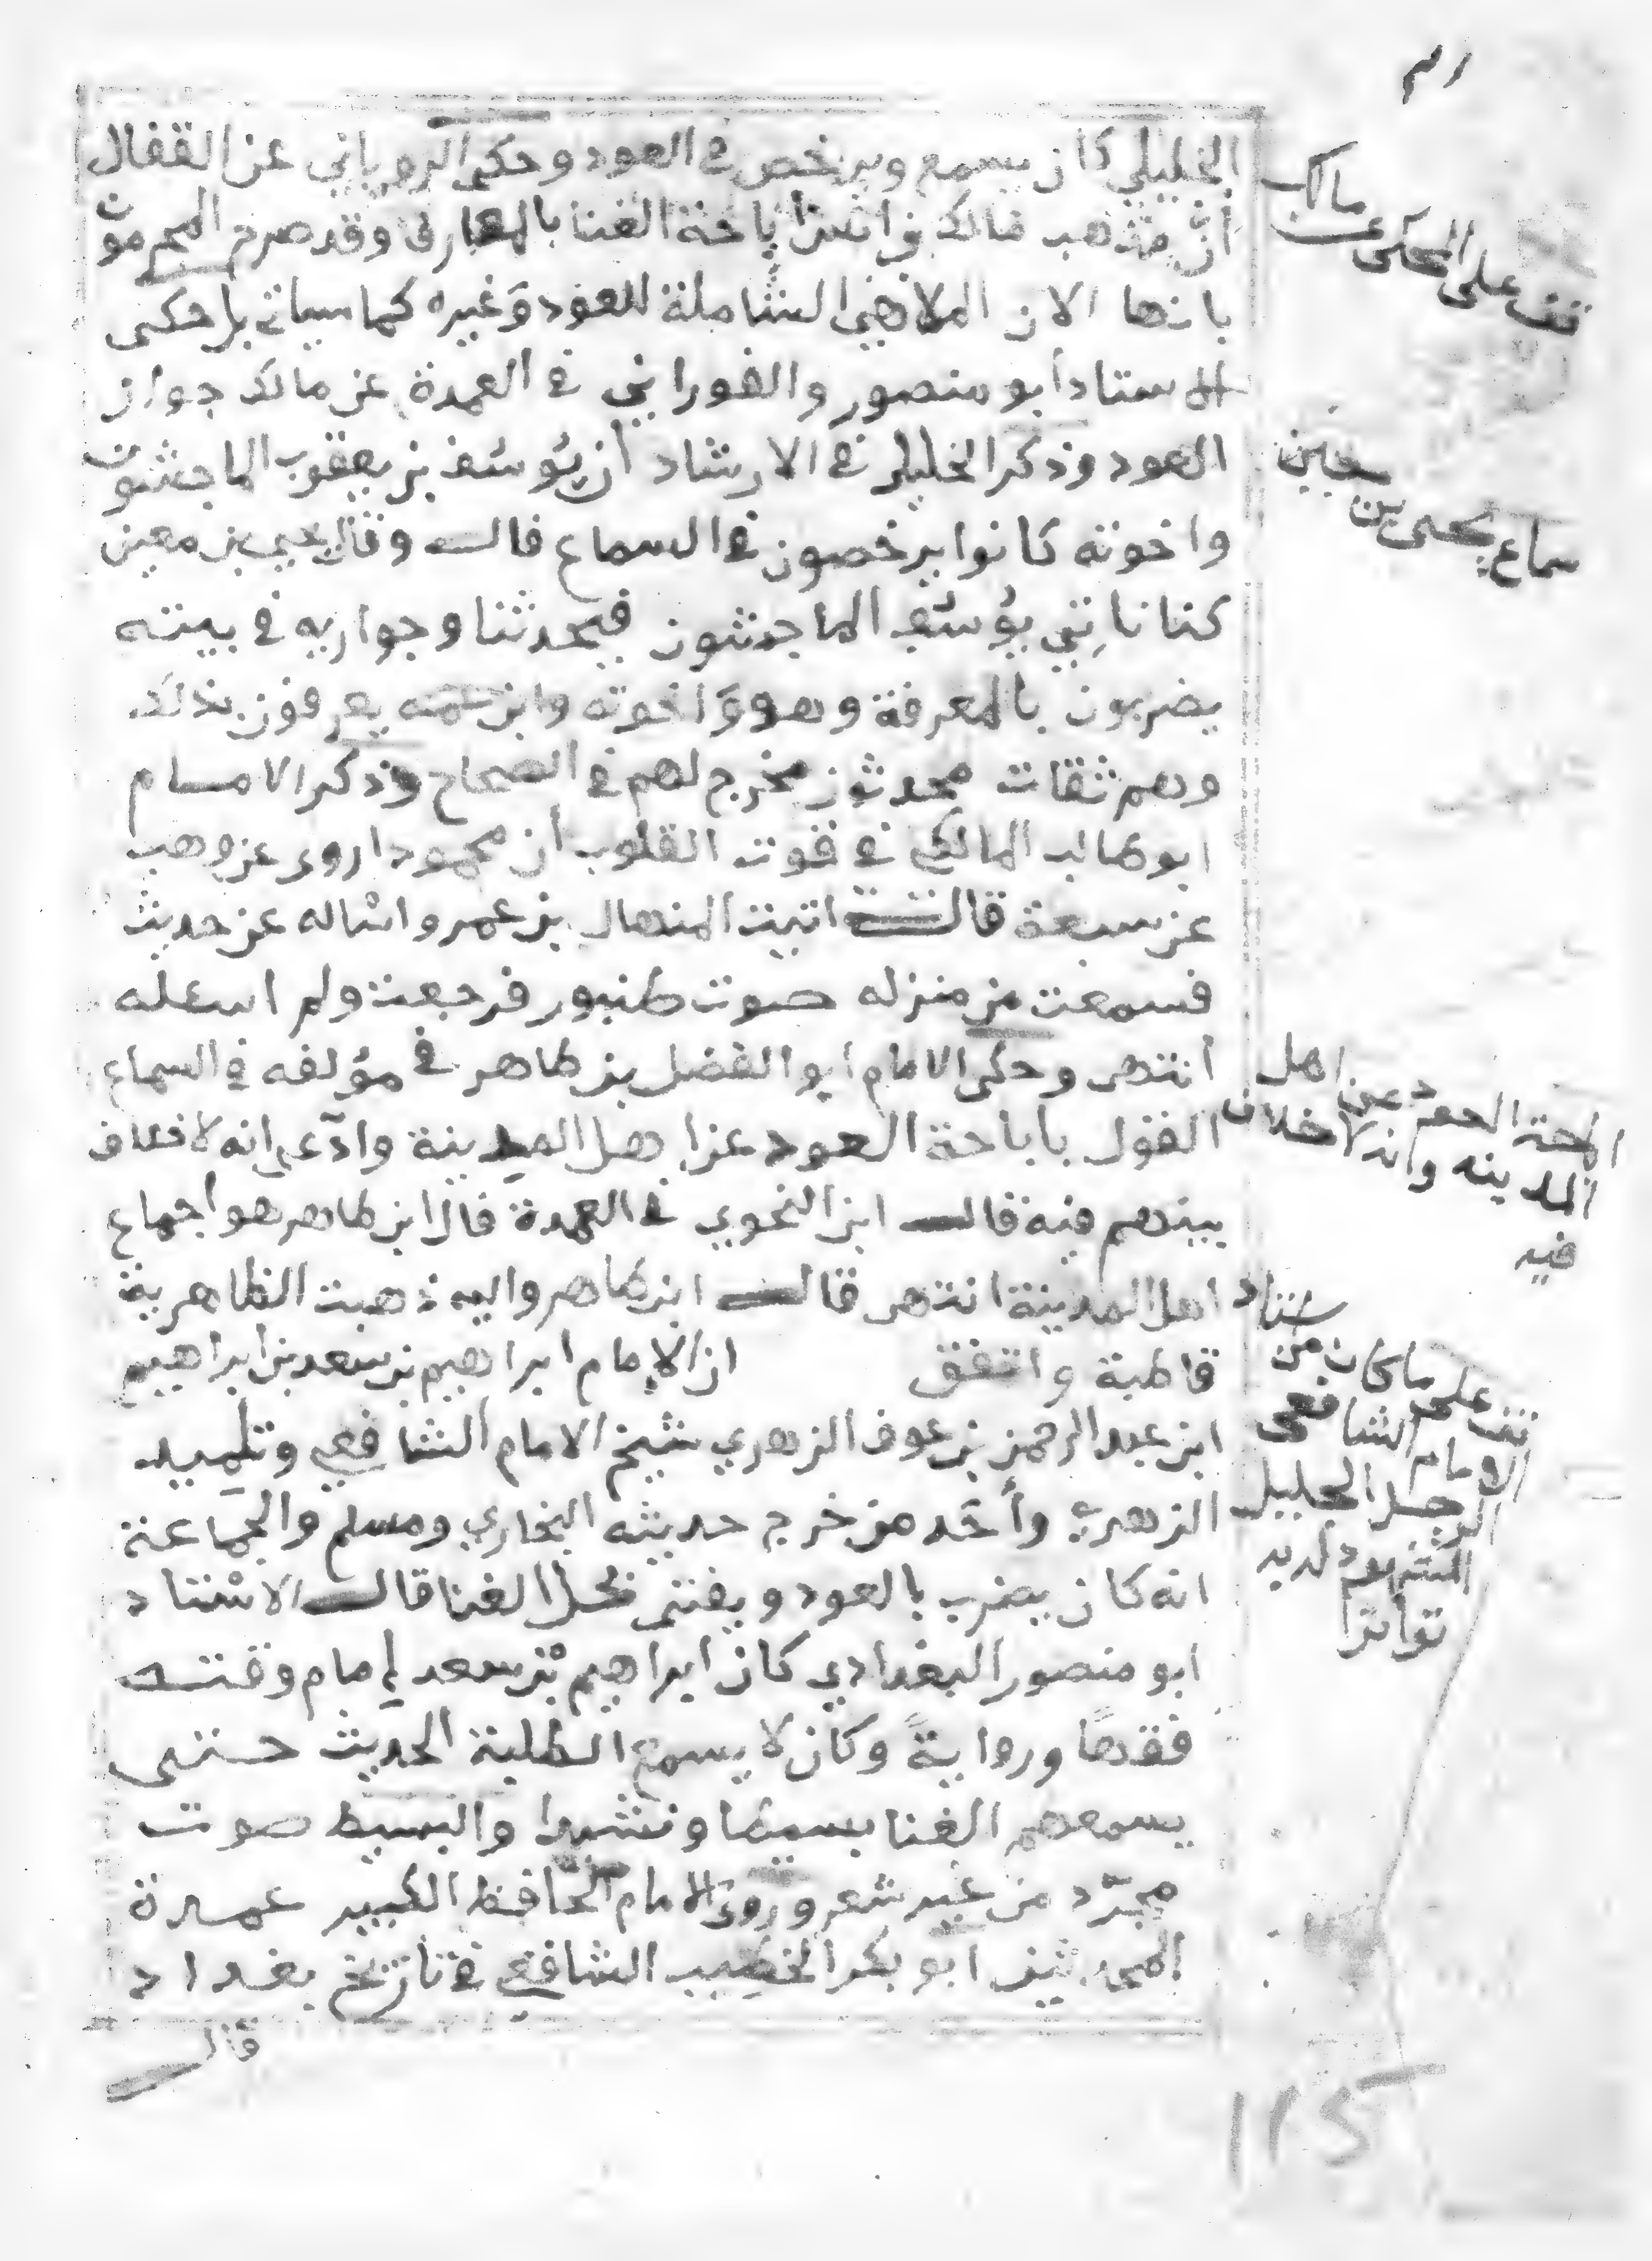 الخليلي كان يسمع ويرخص في العود وحكى الروياني عن القفال
أن مذهب مالك بن انس اباحة الغنا بالمعازف وقد صرح المجرمون
بانها الات الملاهي الشاملة للعود وغيره كما سياتي بل حكى
الاستاد أبو منصور والفوراني في العمدة عن مالك جواز
العود وذكر الخليلي في الارشاد أن يوسف بن يعقوب الماجشون
واخوته كانوا يرخصون في السماع قال وقال يحيى بن معين
كنا ناتي يوسف الماجشون فيحدثنا وجواريه في بيته
يضربون بالمعزفة وهو واخوته وابن عمه يعرفون بذلك
وهم ثقات محدثون مخرج لهم في الصحاح وذكر الامام
ابو طالب المالكي في قوت القلوب أن محمودا روى عن وهب
عن سبعة قال اتيت المنهال بن عمرو اساله عن حديث
فسمعت من منزله صوت طنبور فرجعت ولم اسئله
أنتهى وحكى الامام أبو الفضل بن طاهر في مؤلفه في السماع
القول باباحة العود عن اهل المدينة وادعى انه لا خلاف
بينهم فيه قال ابن النحوي في العمدة قال ابن طاهر هو اجماع
اهل المدينة انتهى قال ابن طاهر واليه ذهبت الظاهرية
قاطبة واتفق ان الإمام ابراهيم بن سعد بن ابراهيم
ابن عبد الرحمن بن عوف الزهري شيخ الامام الشافعي وتلميد
الزهري وأحد من خرج حديثه البخاري ومسلم والجماعة
انه كان يضرب بالعود ويفتي بحل الغنا قال الاستاد
ابو منصور البغدادي كان ابراهيم بن سعد إمام وقته
فقها ورواية وكان لا يسمع الطلبة الحديث حتى
يسمعهم الغنا بسيطا ونشيدا والبسيط صوت
مجرد من غير شعر وروى الامام الحافظ الكبير عمدة
المحدثين ابو بكر الخطيب الشافعي في تاريخ بغداد
قال
قف على المحكى عن مالك
سماع يحيى بن معين
اباحة العود عن اهل
المدينه وانه لا خلاف
فيه
قف على ماكان من استاد
الامام الشافعي
الرجل الجليل
المشهود لديه
تواترا
115